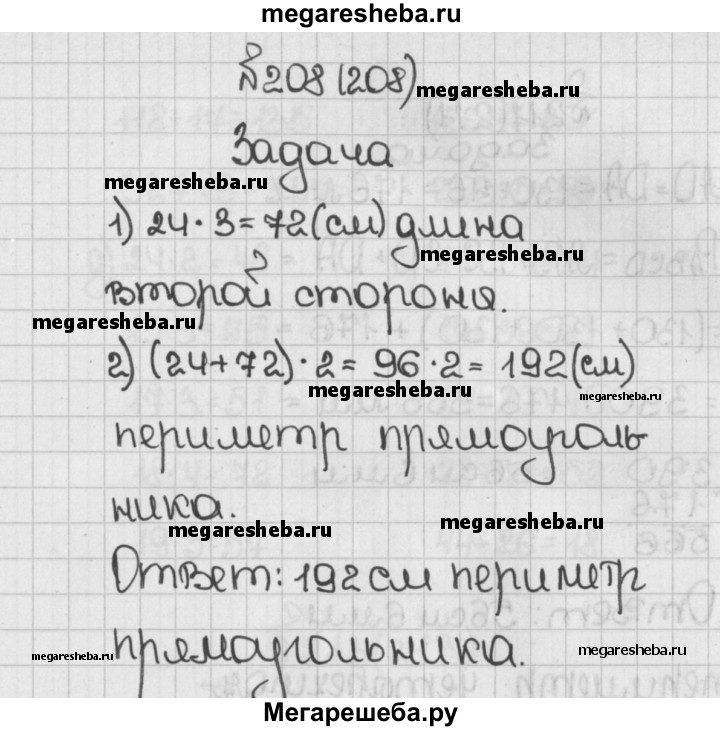 megaresheba.ru
№208 (208)
megaresheba.ru
Задача
megaresheba.ru
1) 24·3=72(см) длина
megaresheba.ru
второй стороны.
megaresheba.ru
2) (24+72)·2=96·2=192(см)
megaresheba.ru
megaresheba.ru
периметр прямоуголь
ника.
megaresheba.ru
megaresheba.ru
Ответ: 192 см периметр
megaresheba.ru
megaresheba.ru
прямоугольника.
Мегарешеба.ру